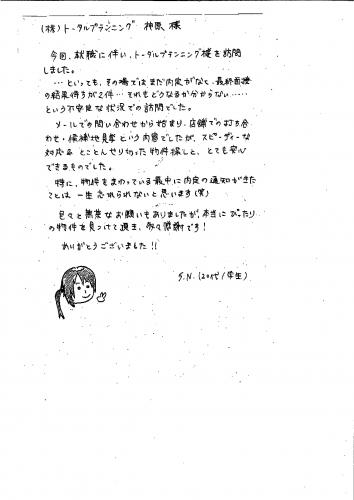 (株)トータルプランニング 神原 様
今回、就職に伴い、トータルプランニング様を訪問
しました。
…といっても、その場ではまだ内定がなく、最終面接
の結果待ちが2件…それもどうなるか分からない……
という不安定な状況での訪問でした。
メールでの問い合わせから始まり、店舗での打ち合
わせ・候補地見学という内容でしたが、スピーディーな
対応と とことんやり切った物件探しと、とても安心
できるものでした。
特に、物件をまわっている最中に内定の通知がきた
ことは 一生 忘れられないと思います(笑)
色々と無茶なお願いもありましたが、本当にぴったり
の物件を見つけて頂き、多々感謝です!
ありがとうございました!!
S.N.(20代/学生)